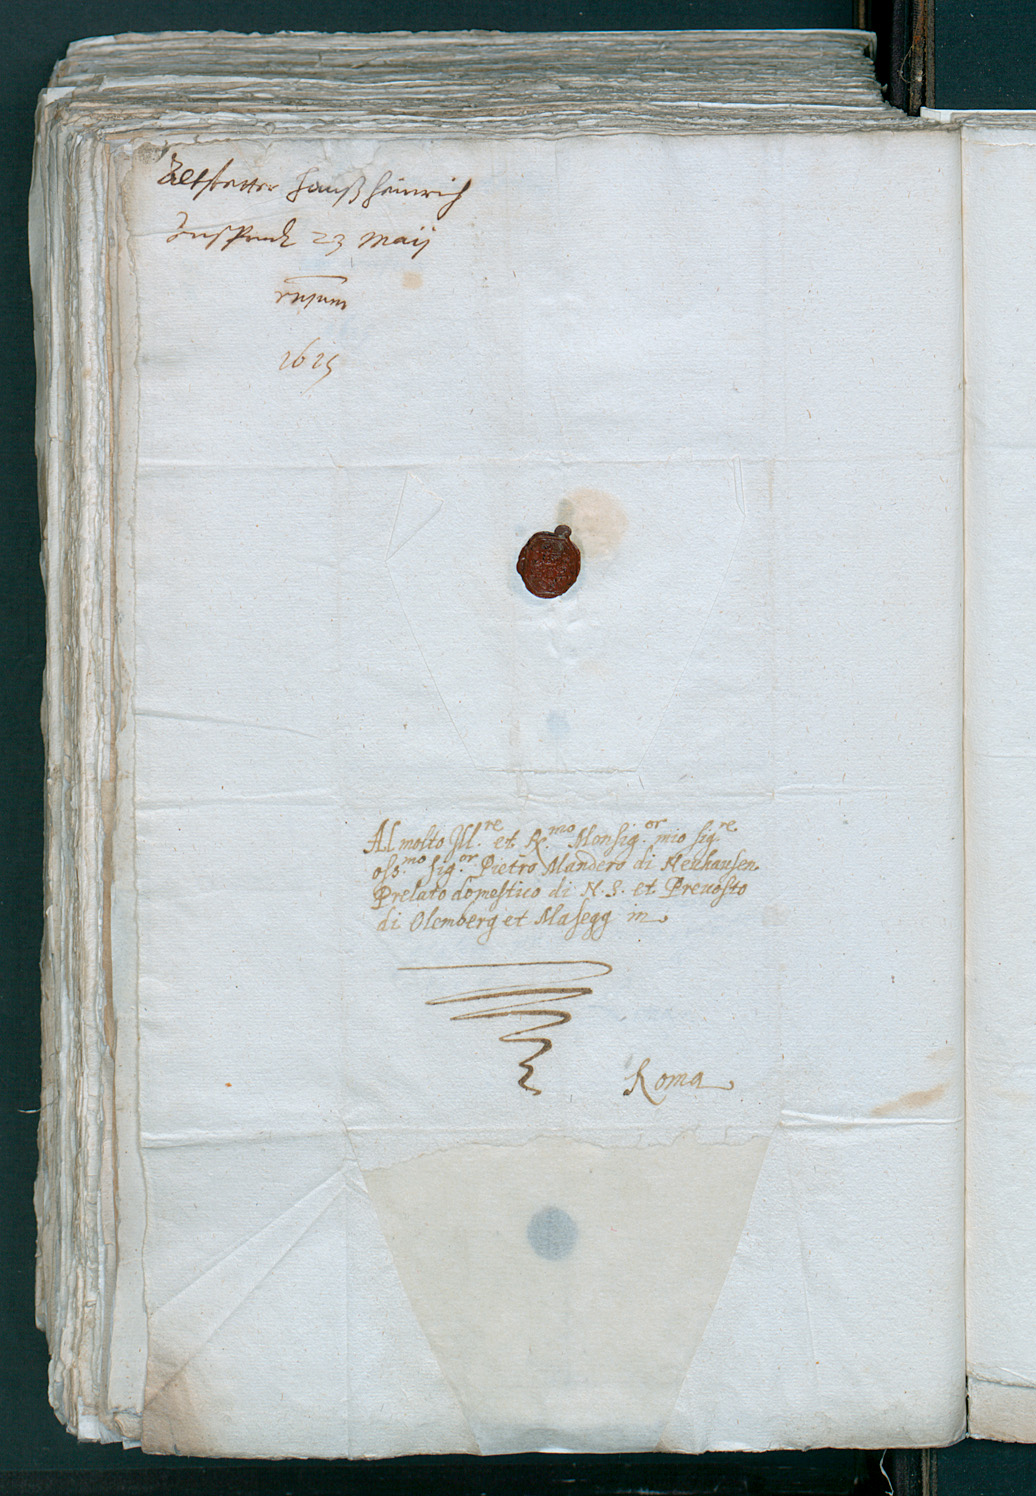 Altstetter Hanß Heinrich
Inspruck 23 Maij
1625
Al molto Ill.re et R.mo Monsig.or mio sig.re
oss.mo sig.or Pietro Mandero di Neuhausen
Prelato domestico di N. S. et Preuosto
di Olemberg et Masegg in
Roma